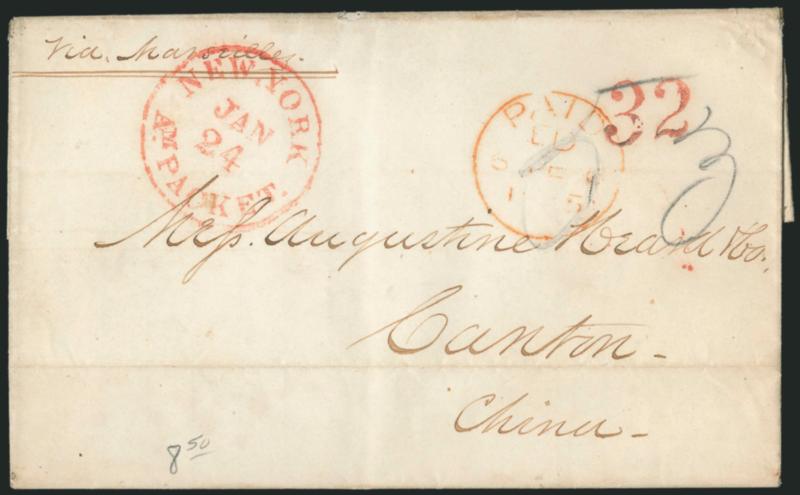 Via, Marseilles.
NEW-YORK
JAN
24
AM PACKET.
PAID
32
3
Mess. Augustine Heard & Co.
Canton-
China-
8 50